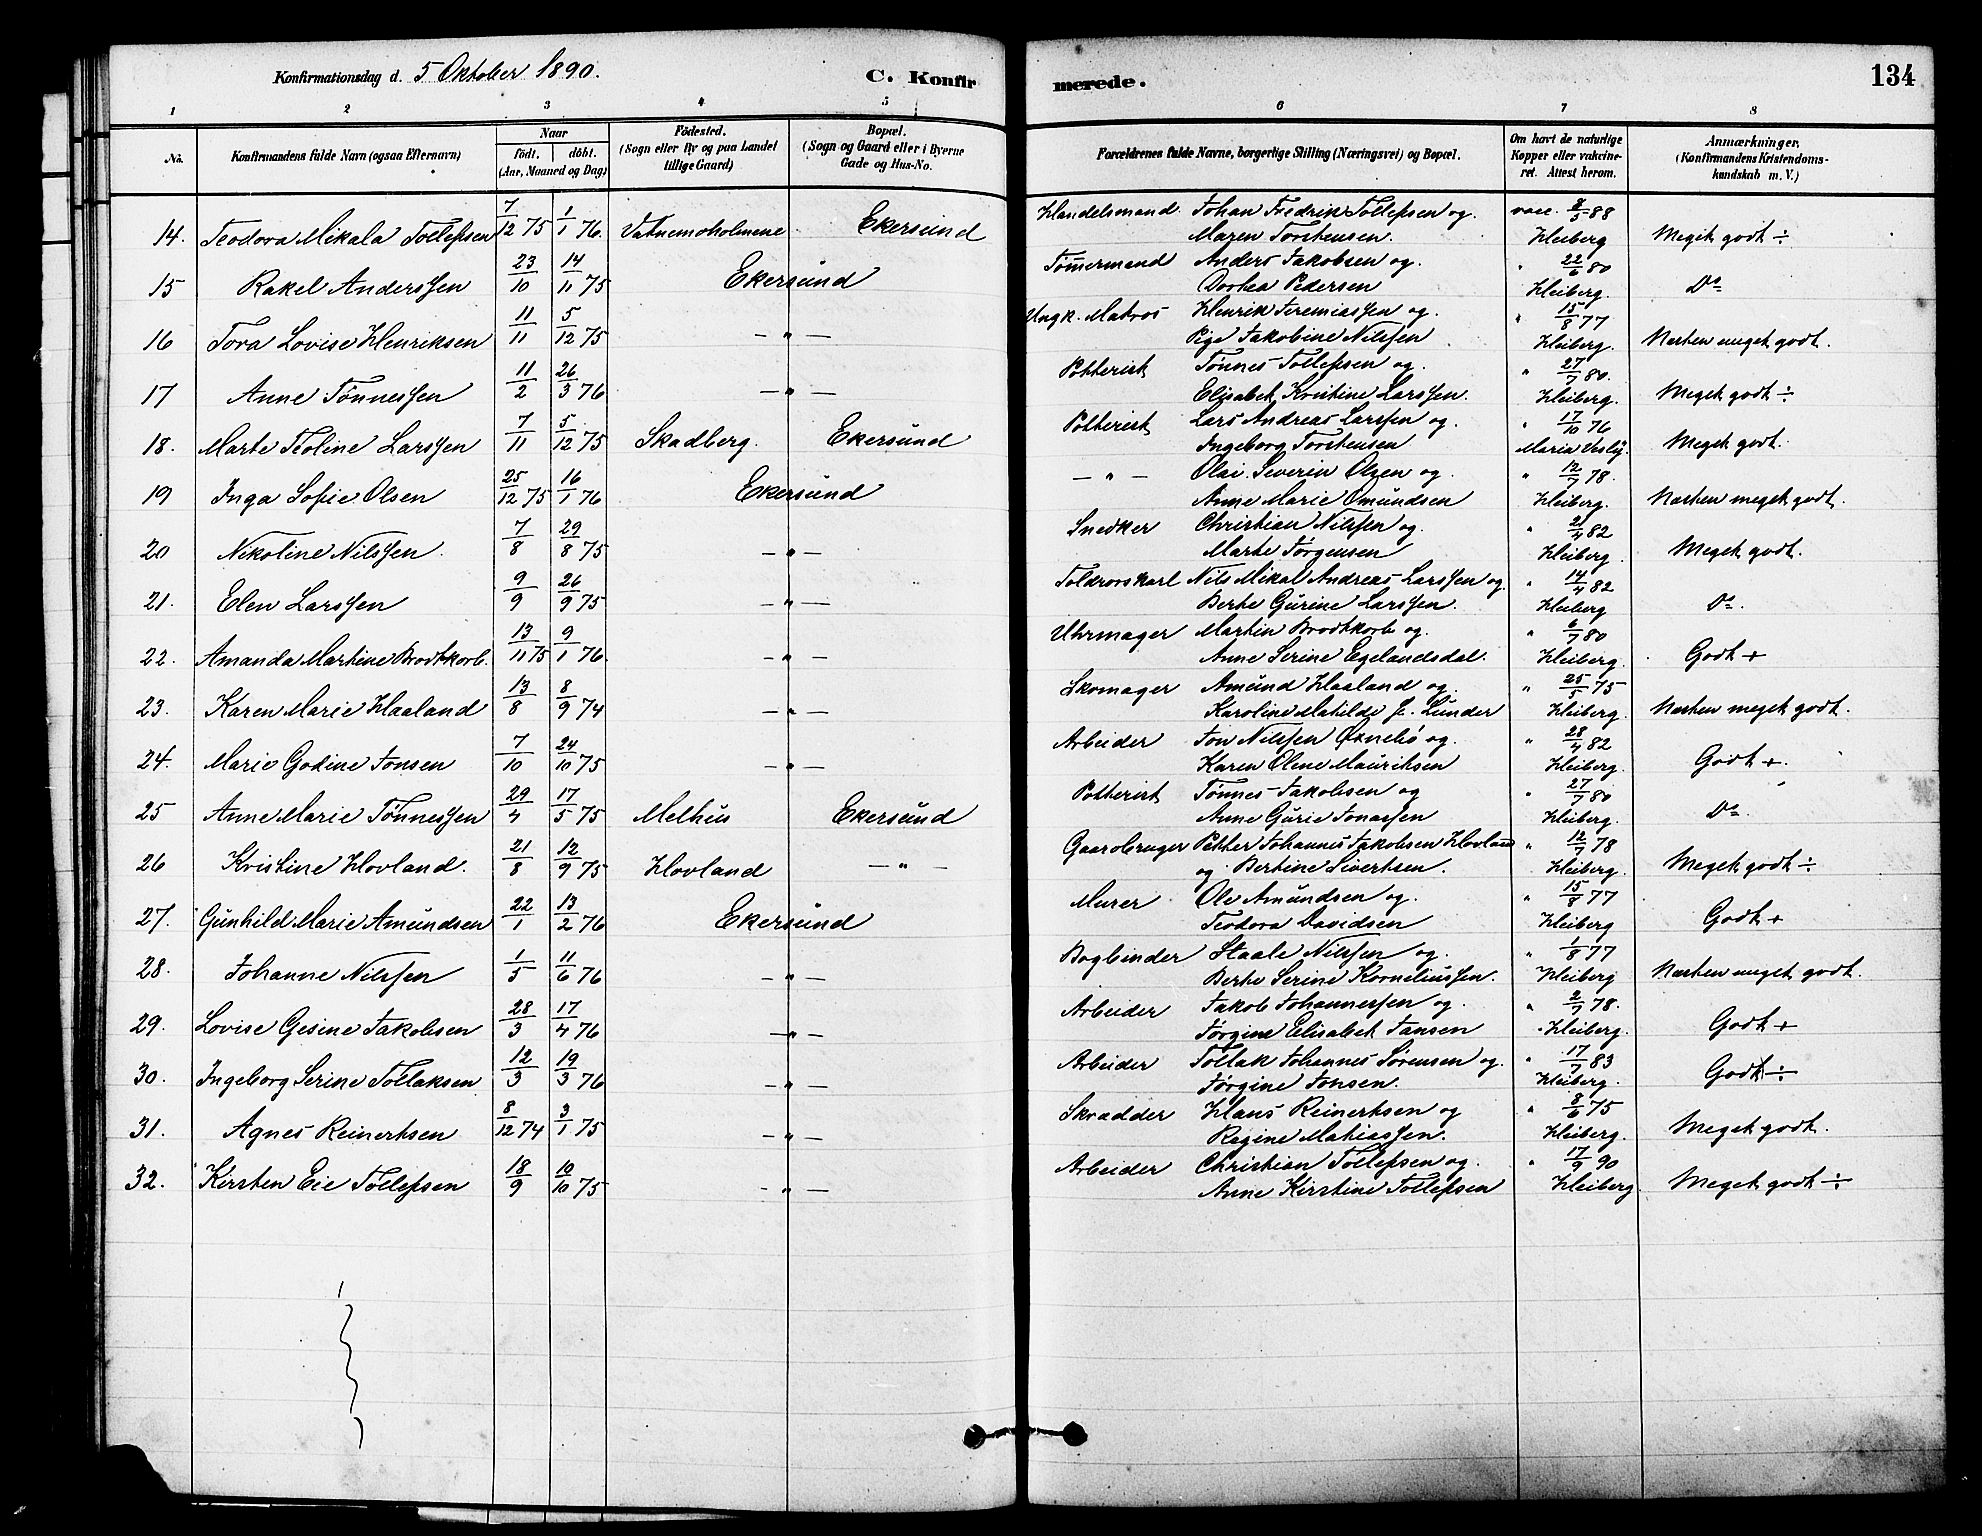 Konfirmationsdag d. 5 Oktober 1890.
C. Konfir
merede.
134
1 2 3 4 5 6 7 8
No.
Konfirmandens fulde Navn (ogsaa Efternavn)
Naar
födt. döbt.
(Aar, Maaned og Dag)
Födested.
(Sogn eller By og paa Landet tillige Gaard)
Bopæl.
(Sogn og Gaard eller i Byerne Gade og Hus-No.
Forældrenes fulde Navne, borgerlige Stilling (Næringsvei) og Bopæl.
Om havt de naturlige Kopper eller vaccineret. Attest herom.
Anmærkninger.
(Konfirmandens Kristendomskundskab m. V.)
14. Teodora Mikala Tollefsen 7/12 75 1/1 76. Vatnemoholmene Ekersund Handelsmand Johan Fredrik Tollefsen og vacc. 8/5 88
Maren Torstensen. Kleiberg Meget godt ÷
15 Rakel Anderssen 23/10 14/11 75 Ekersund Tömmermand Anders Jakobsen og " 22/6 80
Dorhea Pedersen Kleiberg. Do
16 Tora Lovise Henriksen 11/11 5/12 75 — " — Ungk. Matros Henrik Jeremiassen og " 15/8 77
Pige Jakobine Nilssen Kleiberg. Næsten meget godt.
17 Anne Tønnessen 11/2 26/3 76 — " — Potterist Tønnes Tollefsen og " 27/7 80.
Elisabet Kristine Larssen. Kleiberg. Meget godt ÷
18. Marte Teoline Larssen 7/11 5/12 75 Skadberg. Ekersund Potterist Lars Andreas Larssen og " 17/10 76
Ingeborg Torstensen Maria Vesly. Meget godt.
19 Inga Sofie Olsen 25/12 75 16/1 76 Ekersund — " — Olai Severin Olsen og " 12/7 78.
Anne Marie Omundsen Kleiberg. Næsten meget godt.
20 Nikoline Nilssen. 7/8 29/8 75 — " — Snedker Christian Nilssen og " 2/4 82
Marte Jørgensen Kleiberg. Meget godt.
21. Elen Larssen 9/9 26/9 75 — " — Toldrorskarl Nils Mikal Andreas Larssen og " 14/4 82
Berte Gurine Larssen. Kleiberg Do.
22. Amanda Martine Brodtkorb. 13/11 75 9/1 76. — " — Uhrmager Martin Brodtkorb og " 6/7 80
Anne Serine Egelandsdal. Kleiberg. Godt +
23. Karen Marie Haaland 13/8 8/9 74 — " — Skomager Amund Haaland og " 25/5 75
Karoline Matilde f. Lunder Kleiberg. Næsten meget godt.
24. Marie Godine Jonsen 7/10 24/10 75 — " — Arbeider Jon Nilssen og " 28/4 82
Karen Oline Mauritsen Kleiberg. Godt +.
25 Anne Marie Tönnessen 29/4 17/5 75 Melhus Ekersund Potterist Tønnes Jakobsen og " 27/7 80
Anne Gurie Jonassen Kleiberg. Do
26 Kristine Hovland. 21/8 12/9 75 Hovland — " — Gaardbruger Petter Johannes Jakobsen Hovland " 12/7 78
og Bertine Sivertsen. Kleiberg. Meget godt ÷
27. Gunhild Marie Amundsen 22/1 13/2 76 Ekersund Murer Ole Amundsen og " 15/8 77
Teodora Davidsen Kleiberg Godt +
28. Johanne Nilssen 1/5 11/6 76 — " — Bogbinder Staale Nilssen og " 1/8 77
Berte Serine Korneliussen. Kleiberg Næsten meget godt.
29. Lovise Gesine Jakobsen 28/3 17/4 76 — " — Arbeider Jakob Johannessen og " 2/7 78.
Jørgine Elisabet Jansen Kleiberg. Godt +
30. Ingeborg Serine Tollaksen 12/3 19/3 76 — " — Arbeider Tollak Johannes Sørensen og " 17/7 83
Jørgine Jonsen. Kleiberg. Godt ÷
31. Agnes Reinertsen 8/12 74 3/1 75 — " — Skrædder Hans Reinertsen og " 8/6 75
Regine Mathiassen. Kleiberg. Meget godt.
32. Kirsten Eie Tollefsen 18/9 10/10 75 — " — Arbeider Christian Tollefsen og " 17/9 90
Anne Kirstine Tollefsen Kleiberg Meget godt ÷